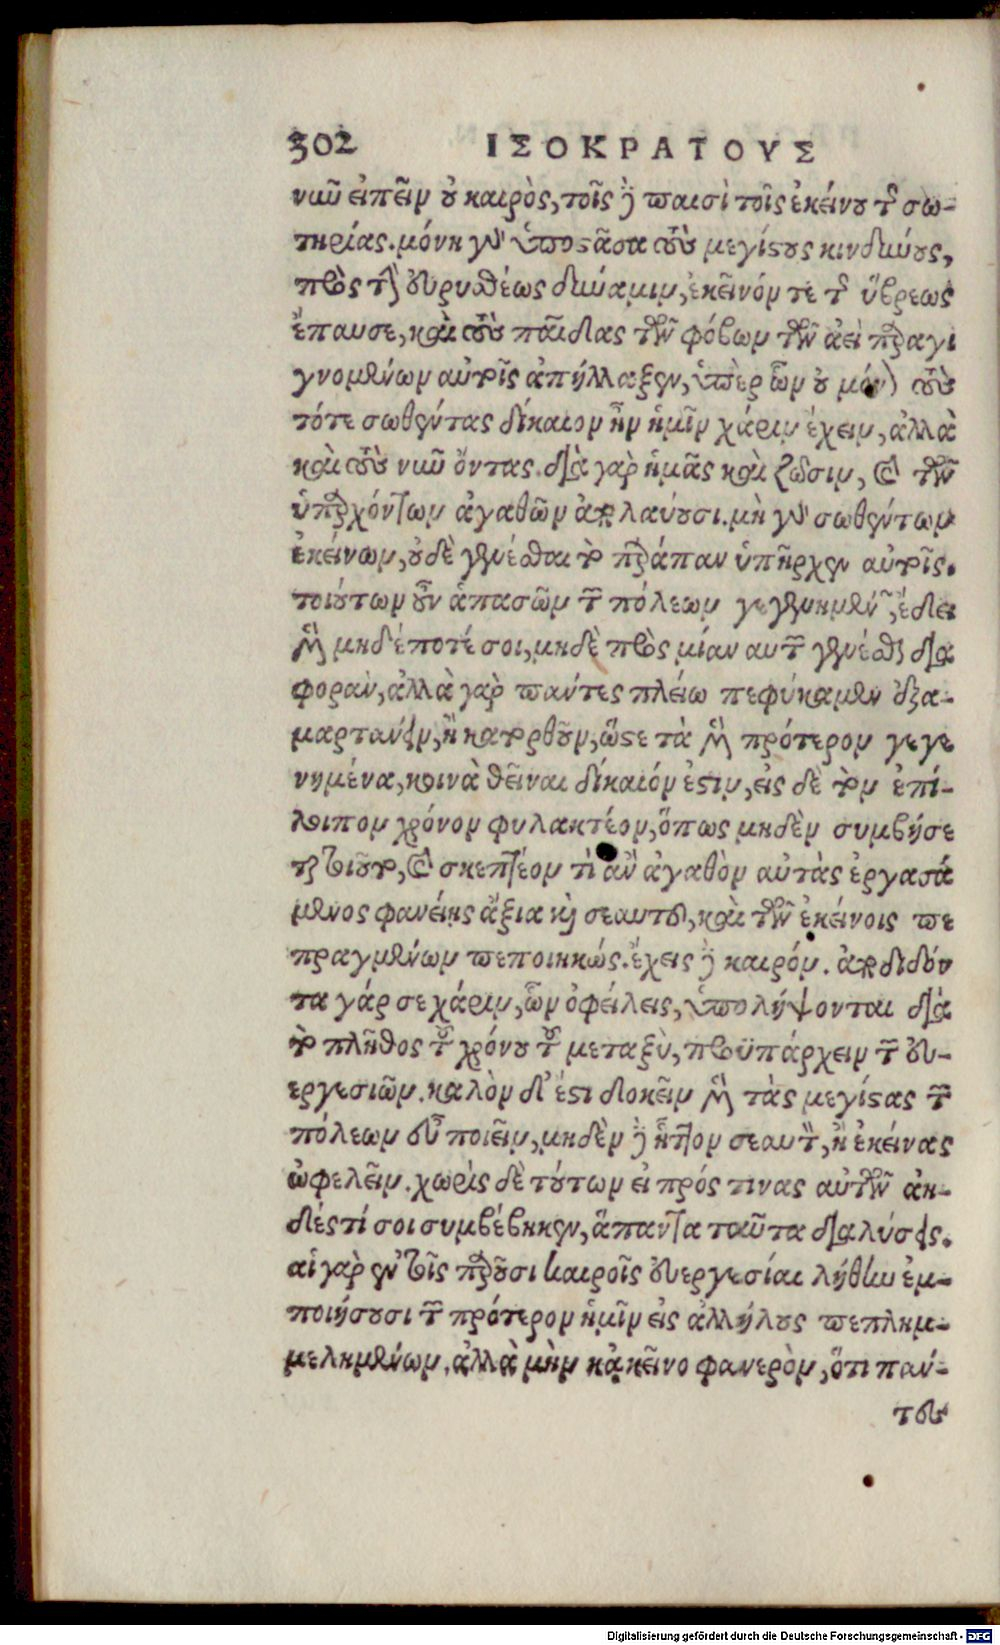 302 ΙΣΟΚΡΑΤΟΥΣ
νῦν εἰπεῖν οὐ καιρὸς, τοῖς δὲ παισὶ τοῖς ἐκείνου τῆς σω-
τηρίας. μόνη γὰρ ὑποστᾶσα τοὺς μεγίστους κινδύνους,
πρὸς τὴν Εὐρυσθέως δύναμιν, ἐκεῖνόν τε τῆς ὕβρεως
ἔπαυσε, καὶ τοὺς παῖδας τῶν φόβων τῶν ἀεὶ παραγι
γνομένων αὐτοῖς ἀπήλλαξεν, ὑπὲρ ὧν οὐ μόνον τοὺς
τότε σωθέντας δίκαιον ἦν ἡμῖν χάριν ἔχειν, ἀλλὰ
καὶ τοὺς νῦν ὄντας. διὰ γὰρ ἡμᾶς καὶ ζῶσιν, καὶ τῶν
ὑπαρχόντων ἀγαθῶν ἀπολαύουσι. μὴ γὰρ σωθέντων
ἐκείνων, οὐδὲ γενέσθαι τὸ παράπαν ὑπῆρχεν αὐτοῖς.
τοιούτων οὖν ἁπασῶν τῶν πόλεων γεγενημένων, ἔδει
μὲν μηδέποτέ σοι, μηδὲ πρὸς μίαν αυτῶν γενέσθαι δια
φοράν, ἀλλὰ γὰρ παντες πλείω πεφύκαμεν ἐξα-
μαρτάνειν, ἢ κατορθοῦν, ὥστε τὰ μὲν πρότερον γεγε
νημένα, κοινὰ θεῖναι δίκαιόν ἐστιν, εἰς δὲ τὸν ἐπί-
λοιπον χρόνον φυλακτέον, ὅπως μηδὲν συμβήσε
ται τοιοῦτο, καὶ σκεπτέον τί ἂν ἀγαθὸν αὐτὰς ἐργασά
μενος φανείης ἄξια καὶ σεαυτοῦ, καὶ τῶν ἐκείνοις πε
πραγμένων πεποιηκώς. ἔχεις δὲ καιρόν. ἀποδιδόν
τα γάρ σε χάριν, ὧν ὀφείλεις, ὑπολήψονται διὰ
τὸ πλῆθος τοῦ χρόνου τοῦ μεταξὺ, προϋπάρχειν τῶν εὐ-
εργεσιῶν. καλὸν δ' ἐστὶ δοκεῖν μὲν τὰς μεγίστας τῶν
πόλεων εὖ ποιεῖν, μηδὲν δὲ ἧττον σεαυτὸν, ἢ ἐκείνας
ὠφελεῖν. χωρὶς δὲ τούτων εἰ πρός τινας αὐτῶν ἀη-
δές τί σοι συμβέβηκεν, ἅπαντα ταῦτα διαλύσεις.
αἱ γὰρ ἐν τοῖς παροῦσι καιροῖς εὐεργεσίαι λήθην ἐμ-
ποιήσουσι τῶν πρότερον ἡμῖν εἰς ἀλλήλους πεπλημ-
μελημένων. ἀλλὰ μὴν κἀκεῖνο φανερὸν, ὅτι πάν-
των
Digitalisierung gefördert durch die Deutsche Forschungsgemeinschaft - DFG